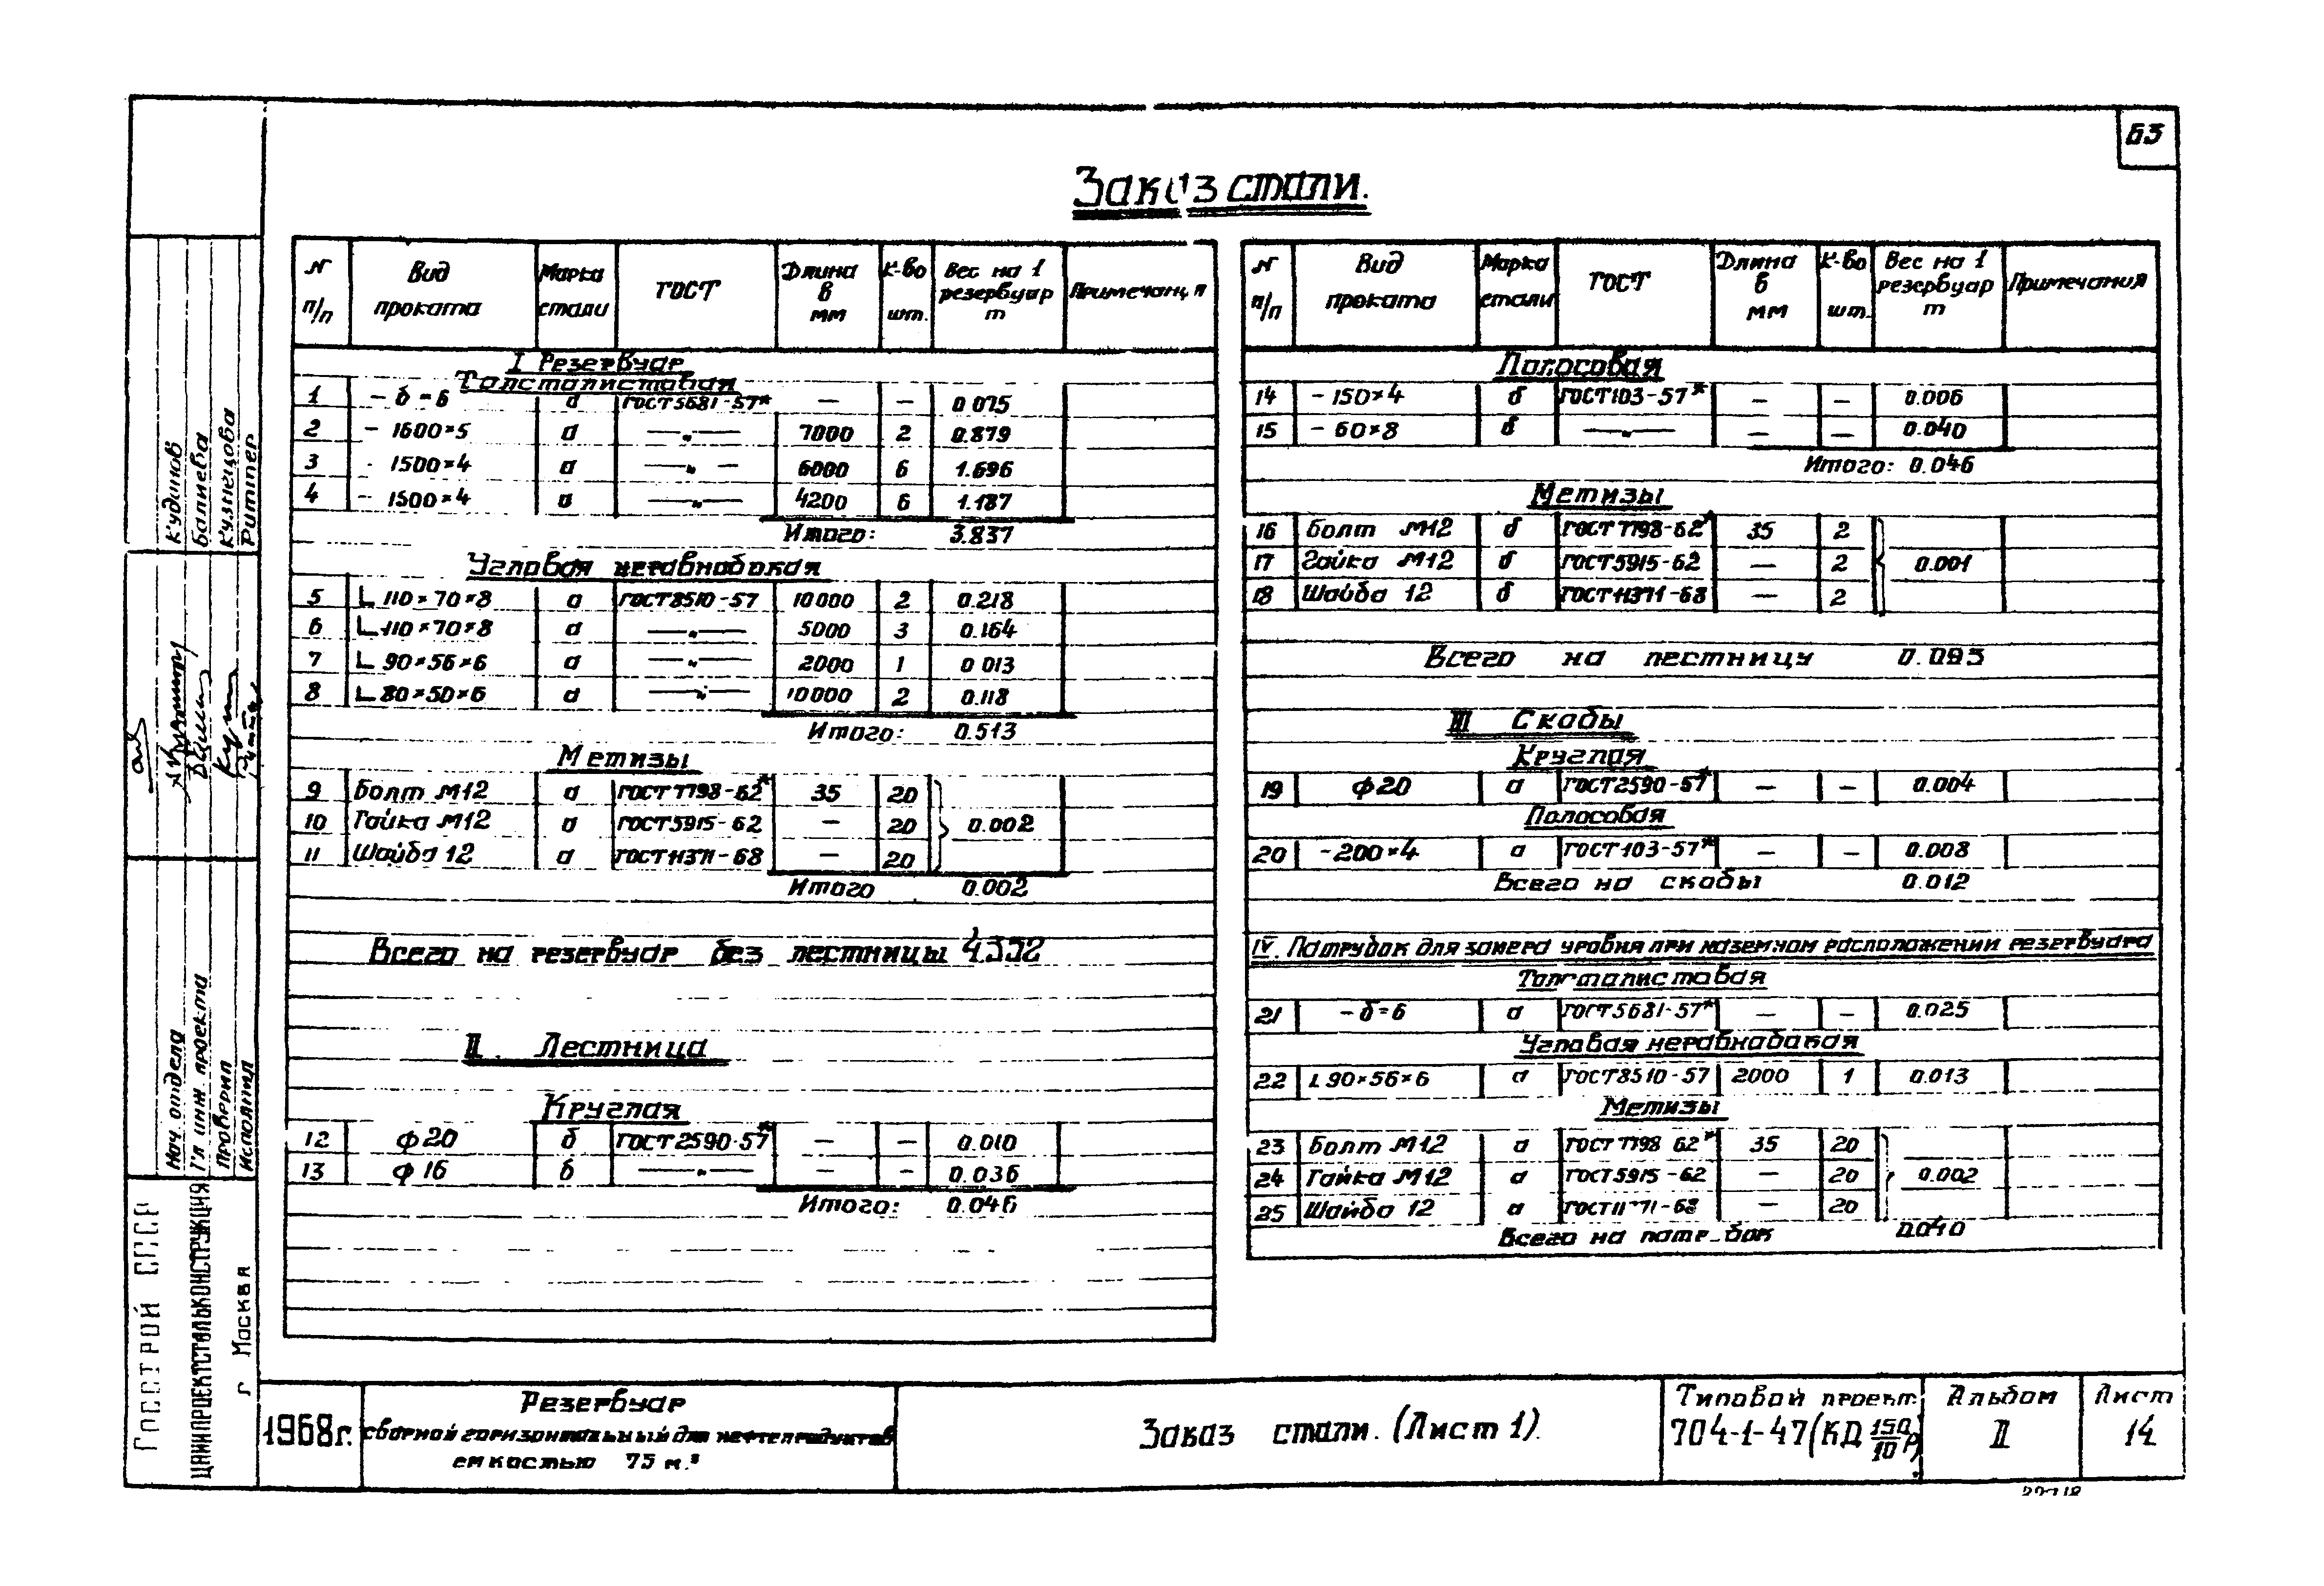 63
Заказ стали.
N п/п Вид проката Марка стали ГОСТ Длина в мм К-во шт. Вес на 1 резервуар т Примечания
I Резервуар
Толстолистовая
1 - δ=6 а ГОСТ 5681-57* — — 0.075
2 - 1600×5 а —„— 7000 2 0.879
3 - 1500×4 а —„— 6000 6 1.696
4 - 1500×4 а —„— 4200 6 1.187
Итого: 3.837
Угловая неравнобокая
5 L 110×70×8 а ГОСТ 8510-57 10000 2 0.218
6 L 110×70×8 а —„— 5000 3 0.164
7 L 90×56×6 а —„— 2000 1 0.013
8 L 80×50×6 а —„— 10000 2 0.118
Итого: 0.513
Метизы
9 Болт М12 а ГОСТ 7798-62* 35 20
10 Гайка М12 а ГОСТ 5915-62 — 20 0.002
11 Шайба 12 а ГОСТ 11371-68 — 20
Итого 0.002
Всего на резервуар без лестницы 4.352
II. Лестница
Круглая
12 ф20 б ГОСТ 2590-57* — — 0.010
13 ф16 б —„— — — 0.036
Итого: 0.046
N п/п Вид проката Марка стали ГОСТ Длина в мм К-во шт. Вес на 1 резервуар т Примечания
Полосовая
14 - 150×4 б ГОСТ 103-57* — — 0.006
15 - 60×8 б —„— — — 0.040
Итого: 0.046
Метизы
16 Болт М12 б ГОСТ 7798-62* 35 2
17 Гайка М12 б ГОСТ 5915-62 — 2 0.001
18 Шайба 12 б ГОСТ 11371-68 — 2
Всего на лестницу 0.093
III Скобы
Круглая
19 ф20 а ГОСТ 2590-57* — — 0.004
Полосовая
20 - 200×4 а ГОСТ 103-57* — — 0.008
Всего на скобы 0.012
IV. Патрубок для замера уровня при наземном расположении резервуара
Толстолистовая
21 - δ=6 а ГОСТ 5681-57* — — 0.025
Угловая неравнобокая
22 L 90×56×6 а ГОСТ 8510-57 2000 1 0.013
Метизы
23 Болт М12 а ГОСТ 7798-62* 35 20
24 Гайка М12 а ГОСТ 5915-62 — 20 0.002
25 Шайба 12 а ГОСТ 11371-68 — 20
Всего на патрубок 0.040
Госстрой СССР
ЦНИИПРОЕКТСТАЛЬКОНСТРУКЦИЯ
г Москва
Нач. отдела Кудинов
Гл инж. проекта Балиева
Проверил Кузнецова
Исполнил Риттер
1968г.
Резервуар
сборной горизонтальный для нефтепродуктов
емкостью 75 м.³
Заказ стали. (Лист 1).
Типовой проект.
704-1-47(КД 150/10 Р)
Альбом
II
Лист
14